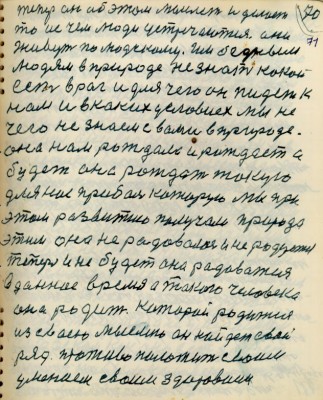 70
71
тепер он об этом мыслет и делает
то и чем люди устричаются. они
живут по людскому. Им бедным
людям в природе не знат какой
есть враг и для чего он пидет к
нам и в каких условиех мы не
чего не знаем с вами в природе.
она нам рождала и рождает а
будет она рождат такую
для нас прибыл которую мы при
этом развитию получали природа
этим она не радовалася и не радуется
теперь и не будет она радоватся
в данное время а такого человека
она родит который родится
из своею мыслию он найдет свой
ряд. противо положит своим
умением своим здоровием